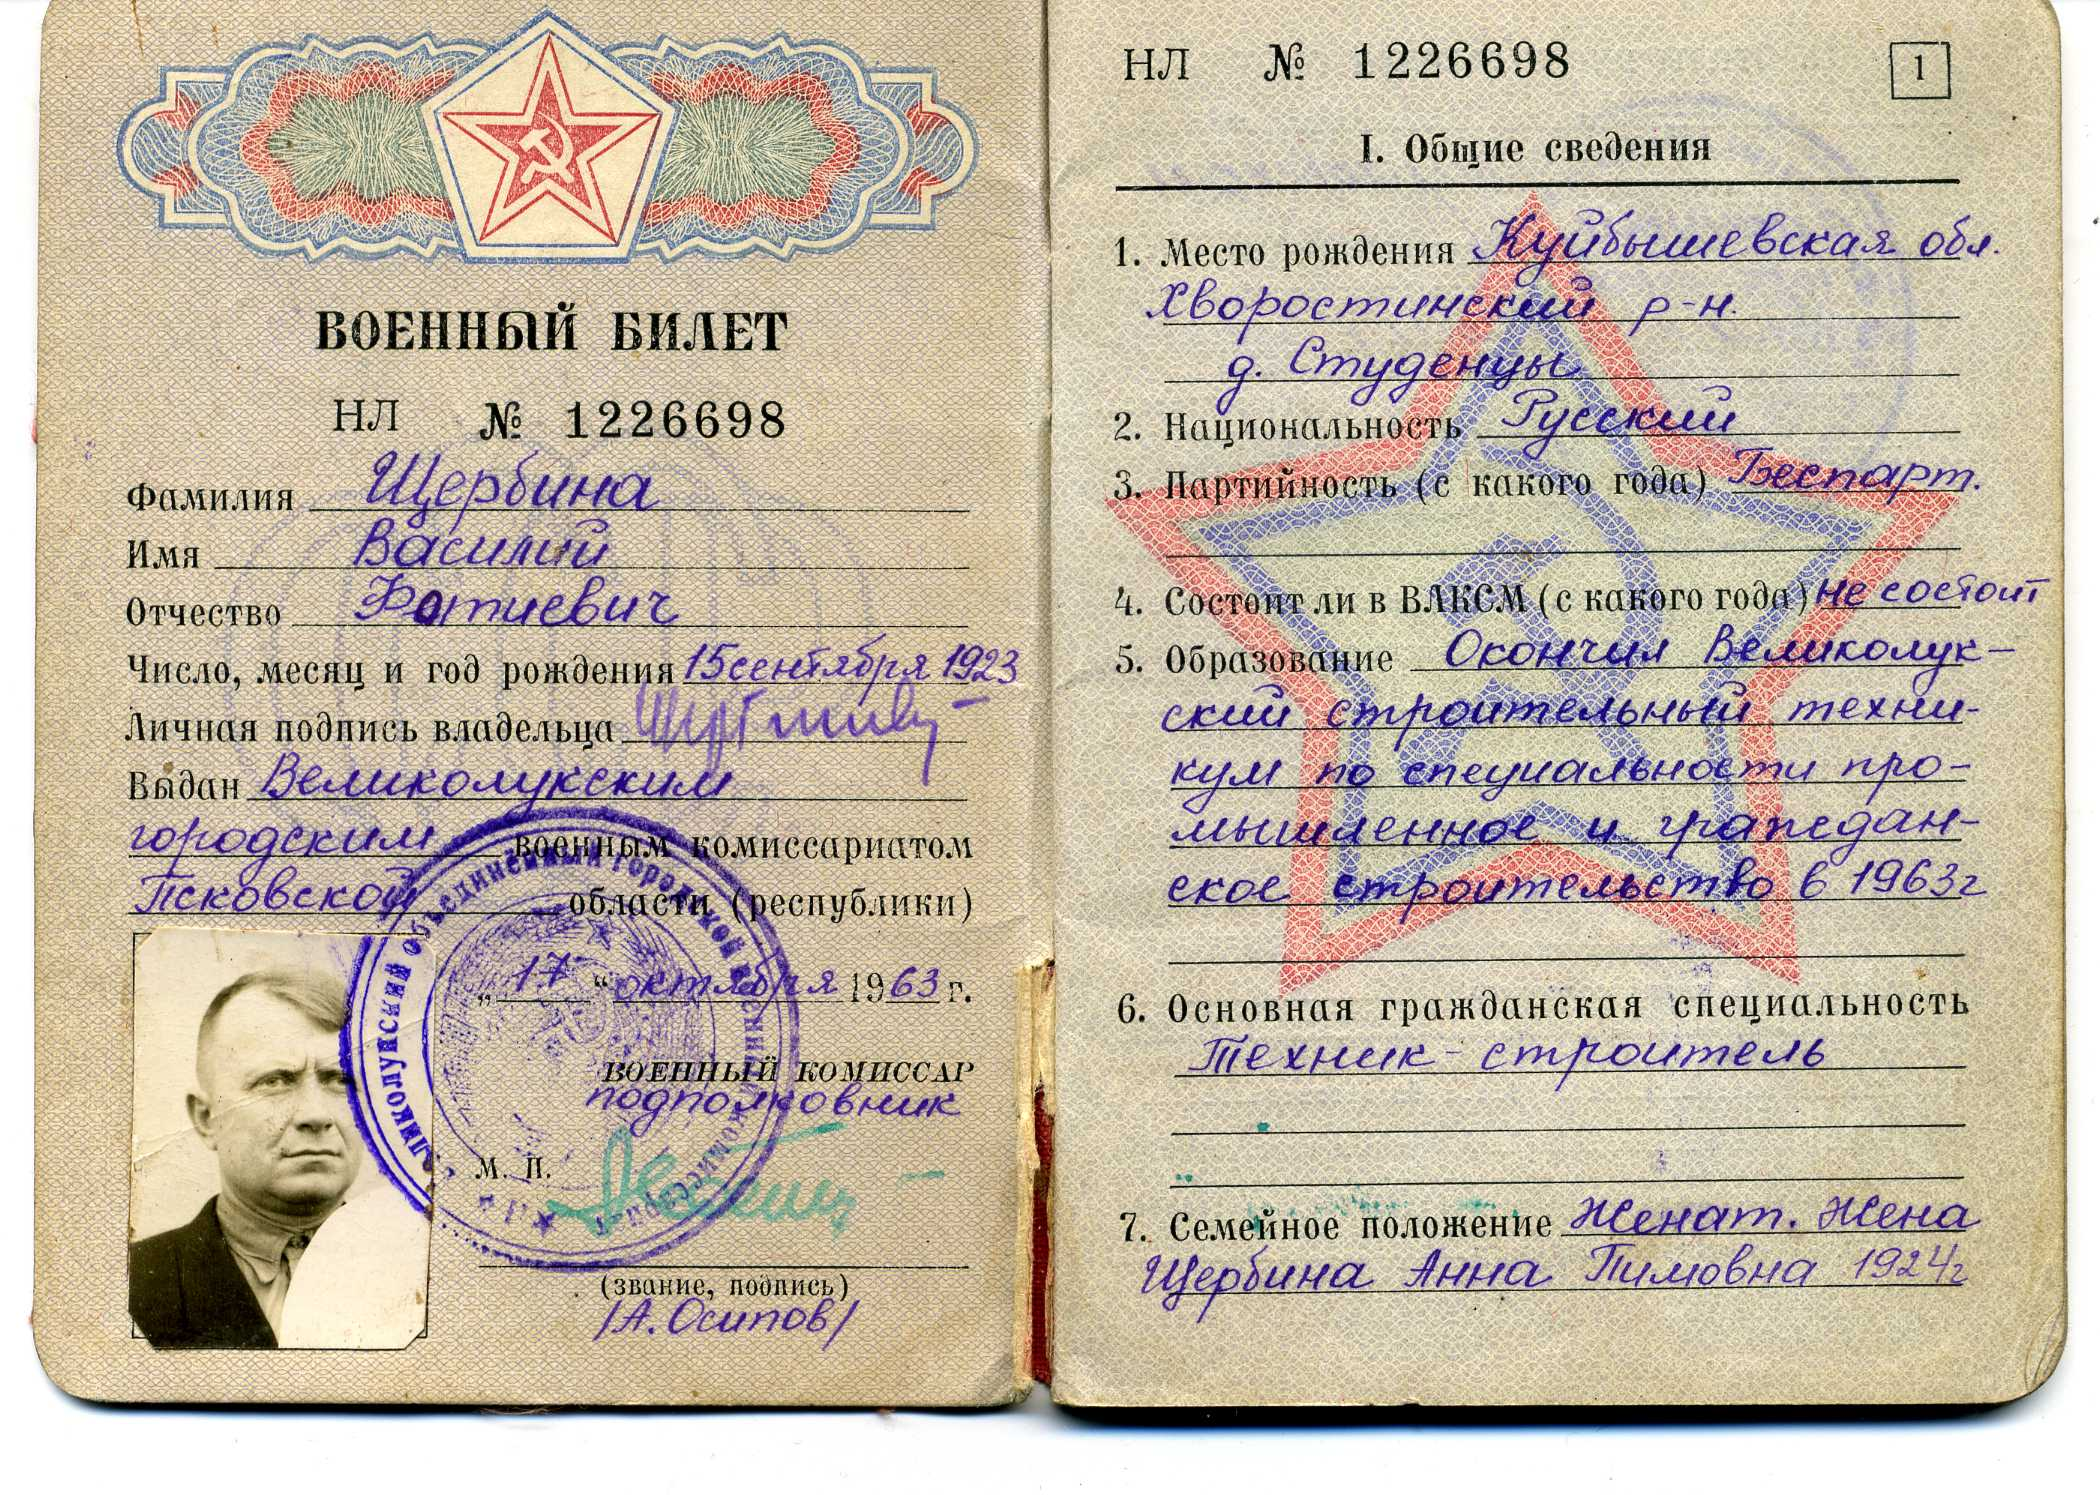 ВОЕННЫЙ БИЛЕТ
НЛ № 1226698
Фамилия Щербина
Имя Василий
Отчество Фотиевич
Число, месяц и год рождения 15 сентября 1923
Личная подпись владельца
Выдан Великолукским
городским военным комиссариатом
Псковской области (республики)
„17“ октября 1963 г.
ВОЕННЫЙ КОМИССАР
подполковник
М. П.
(звание, подпись)
/А. Осипов/
НЛ № 1226698
1
I. Общие сведения
1. Место рождения Куйбышевская обл.
Хворостинский р-н.
д. Студенцы
2. Национальность Русский
3. Партийность (с какого года) Беспарт.
4. Состоит ли в ВЛКСМ (с какого года) не состоит
5. Образование Окончил Великолук-
ский строительный техни-
кум по специальности про-
мышленное и граждан-
ское строительство в 1963г
6. Основная гражданская специальность
Техник-строитель
7. Семейное положение Женат. Жена
Щербина Анна Пимовна 1924г